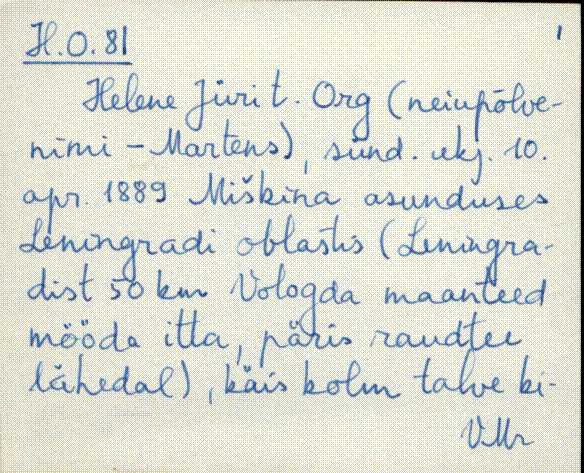 H.O.81
1
Helene Jüri t. Org (neiupõlve-
nimi - Martens), sünd. ukj. 10.
apr. 1889 Miškina asunduses
Leningradi oblastis (Leningra-
dist 50 km Vologda maanteed
mööda itta, päris raudtee
lähedal), käis kolm talve ki-
VMr